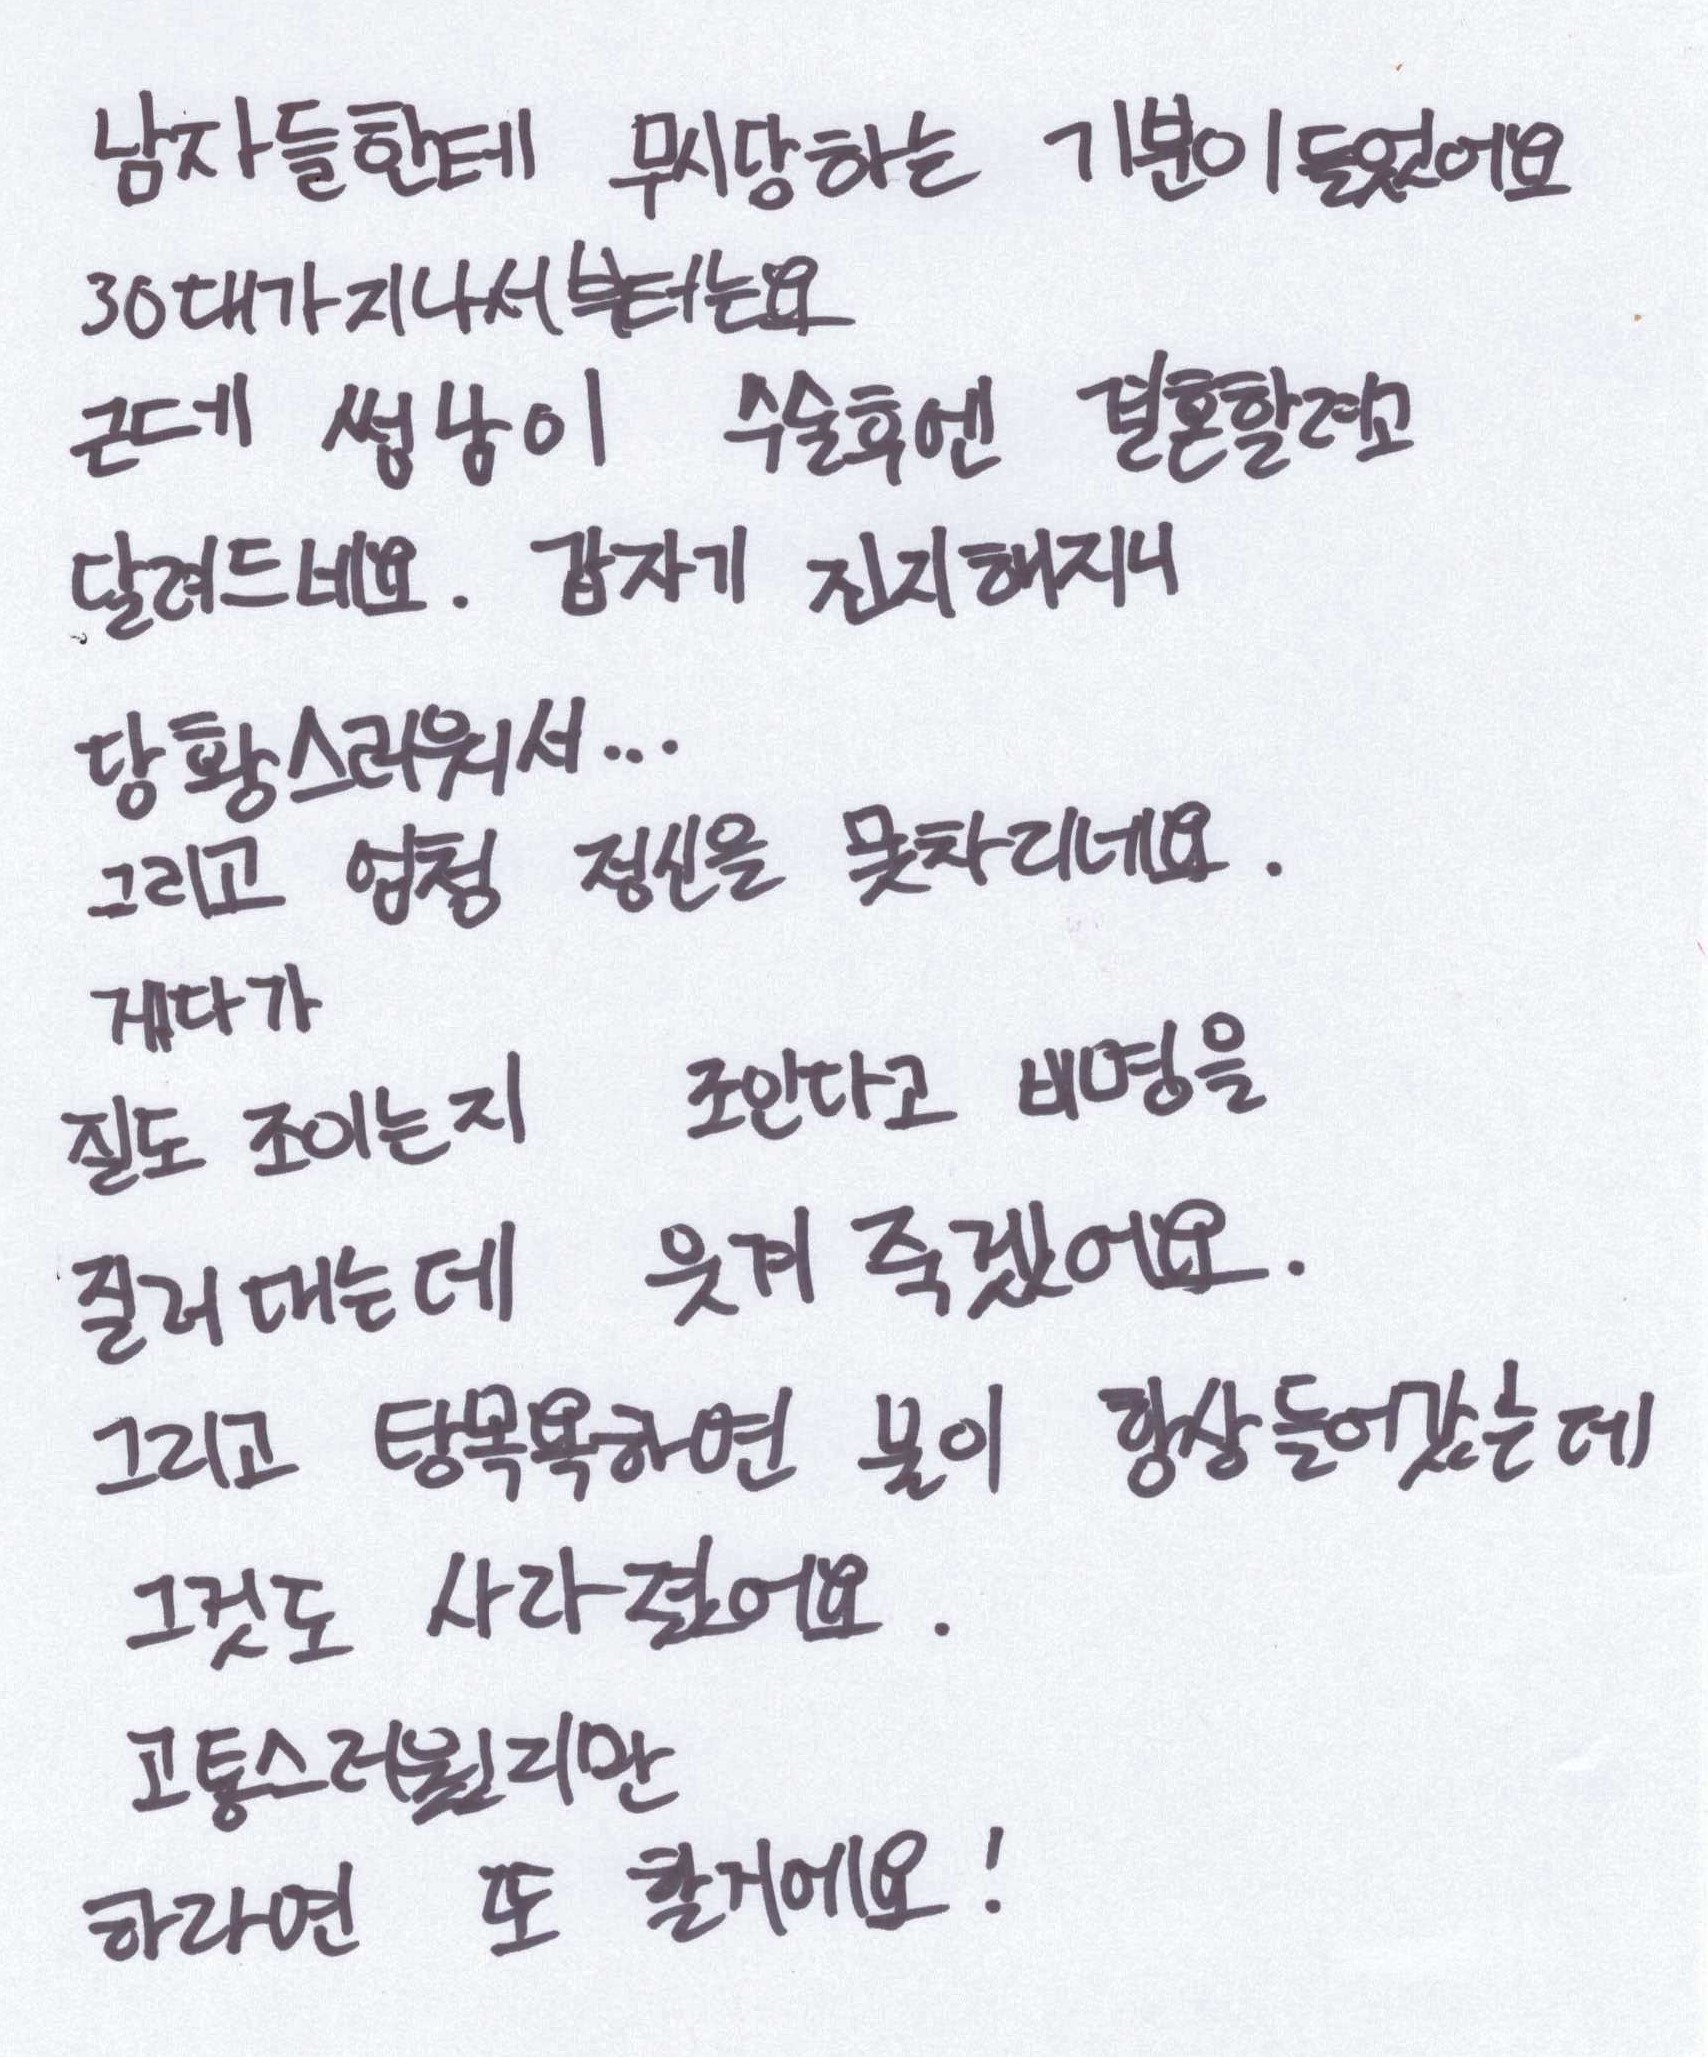 남자들한테 무시당하는 기분이들었어요
30대가지나서부터는요
근데 썸남이 수술후엔 결혼할려고
달려드네요. 갑자기 진지해지니
당황스러워서...
그리고 엄청 정신을 못차리네요.
게다가
질도 조이는지 조인다고 비명을
질러대는데 웃겨 죽겠어요.
그리고 탕목욕하면 물이 항상들어갔는데
그것도 사라졌어요.
고통스러웠지만
하라면 또 할거에요!